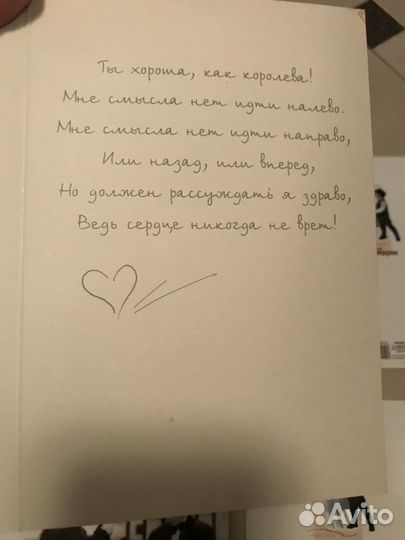 Ты хороша, как королева!
Мне смысла нет идти налево.
Мне смысла нет идти направо,
Или назад, или вперед,
Но должен рассуждать я здраво,
Ведь сердце никогда не врет!
Avito